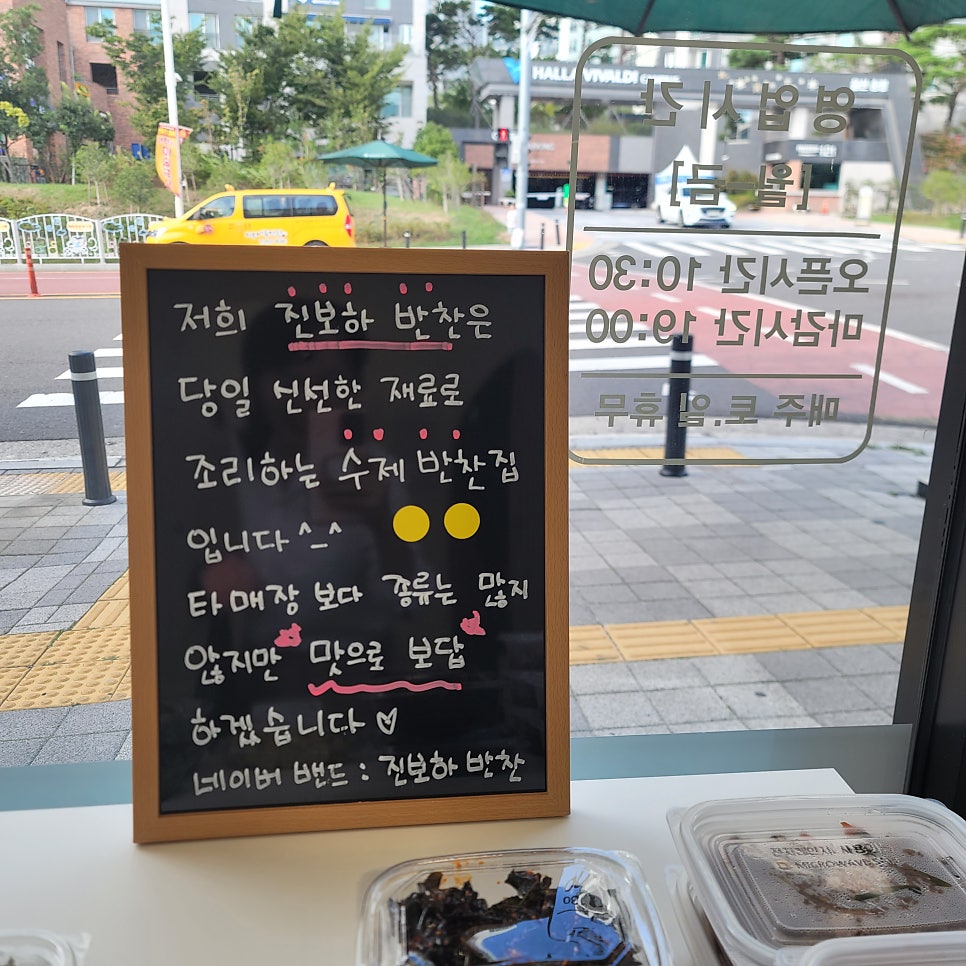 HALLA VIVALDI
영업시간
[월-금]
오픈시간 10:30
마감시간 19:00
매주 토.일 휴무
저희 진보하 반찬은
당일 신선한 재료로
조리하는 수제 반찬집
입니다 ^_^
타매장 보다 종류는 많지
않지만 맛으로 보답
하겠습니다 ♡
네이버 밴드 : 진보하 반찬
MICROWAVE